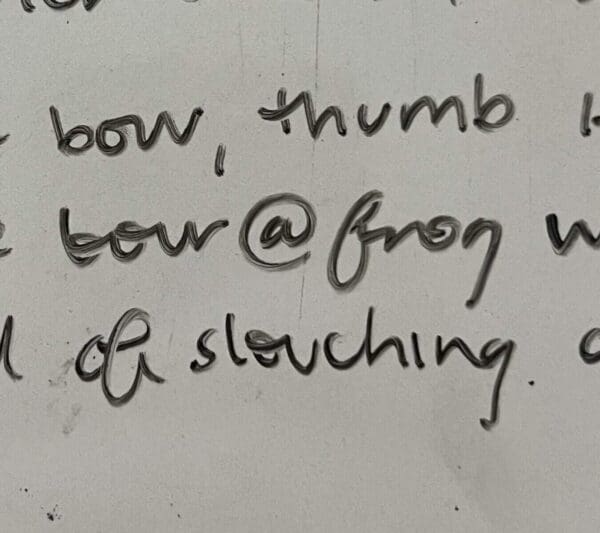 bow, thumb
bow @ frog
of slouching.